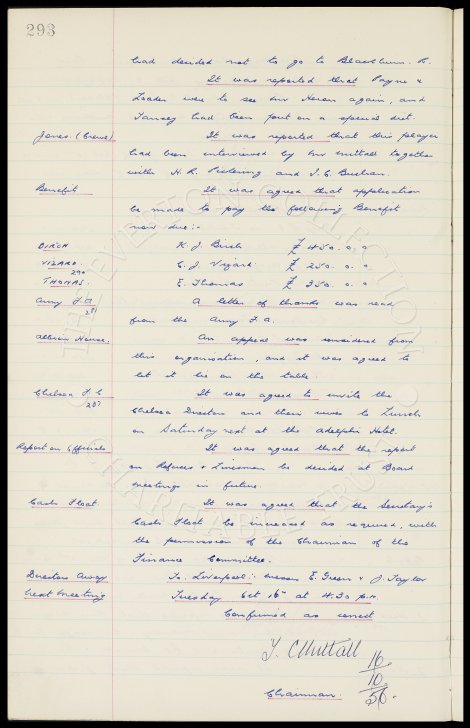 293
had decided not to go to Blackburn. R.
It was reported that Payne &
Leader were to see Mr Heron again, and
Tansey had been put on a special diet.
Jones. (Crewe) It was reported that this player
had been interviewed by Mr Nuttall together
with H. R. Pickering and T. C. Buchan.
Benefit It was agreed that application
be made to pay the following Benefit
now due:-
BIRCH K. J. Birch £ 450. 0. 0
VIZARD. C. J. Vizard £ 250. 0. 0
290
THOMAS. E. Thomas £ 350. 0. 0
Army F.A. A letter of thanks was read
281
from the Army F.A.
Albion House. An appeal was considered from
this organisation, and it was agreed to
let it lie on the table.
Chelsea F.C It was agreed to invite the
287
Chelsea Directors and their wives to Lunch
on Saturday next at the Adelphi Hotel.
Report on Officials It was agreed that the report
on Referees & Linesmen be decided at Board
meetings in future.
Cash Float. It was agreed that the Secretary's
Cash Float be increased as required, with
the permission of the Chairman of the
Finance Committee.
Directors Away To. Liverpool:- Messrs E. Green & J. Taylor
Next Meeting Tuesday Oct 16th at 4.30 p.m.
Confirmed as correct
T. C Nuttall
16
10
56.
Chairman.
THE EVERTON COLLECTION
CHARITABLE TRUST